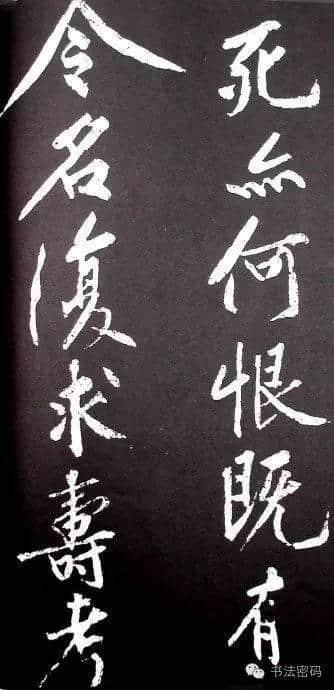 死亦何恨既有
令名復求壽考
书法密码